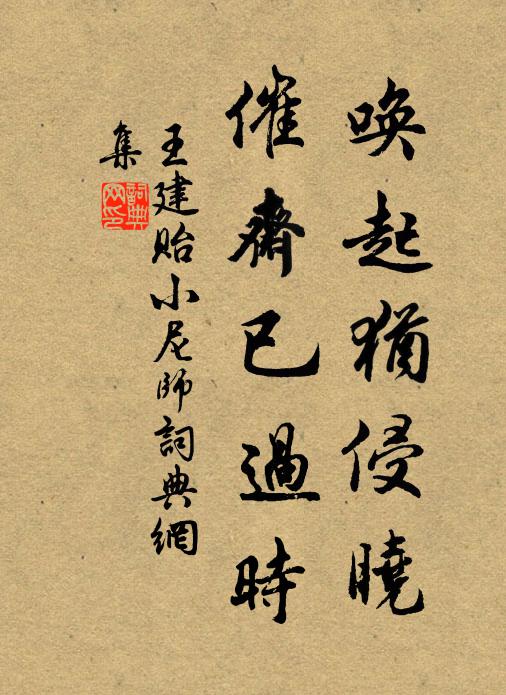 喚起猶侵曉
催齋已過時
王建貽小尼師詞典網
集
詞典
网印